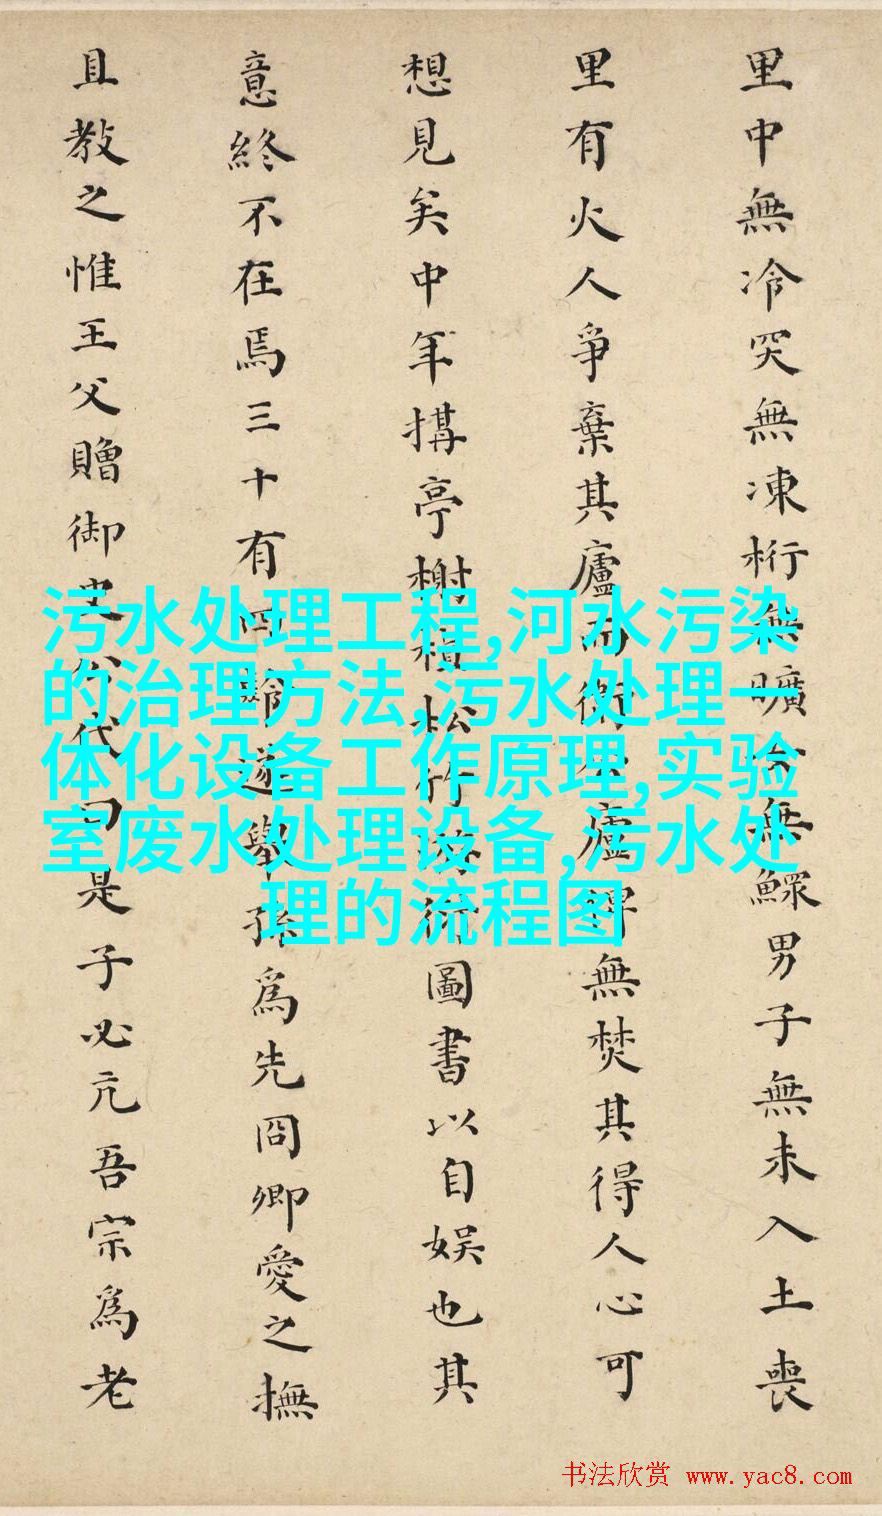 里中無冷突無凍桁無曠無鰥男子無未入土喪
里有火人爭棄其廬而衛公廬得無焚其得人心可
想見矣中年搆亭榭植松竹圖書以自娛也其
意終不在焉三十有四遂舉孫爲先冏卿愛之撫
且教之惟王父贈御史公代曰是子必亢吾宗爲老
污水处理工程,河水污染
的治理方法,污水处理一
体化设备工作原理,实验
室废水处理设备,污水处
理的流程图
书法欣赏 www.yac8.com